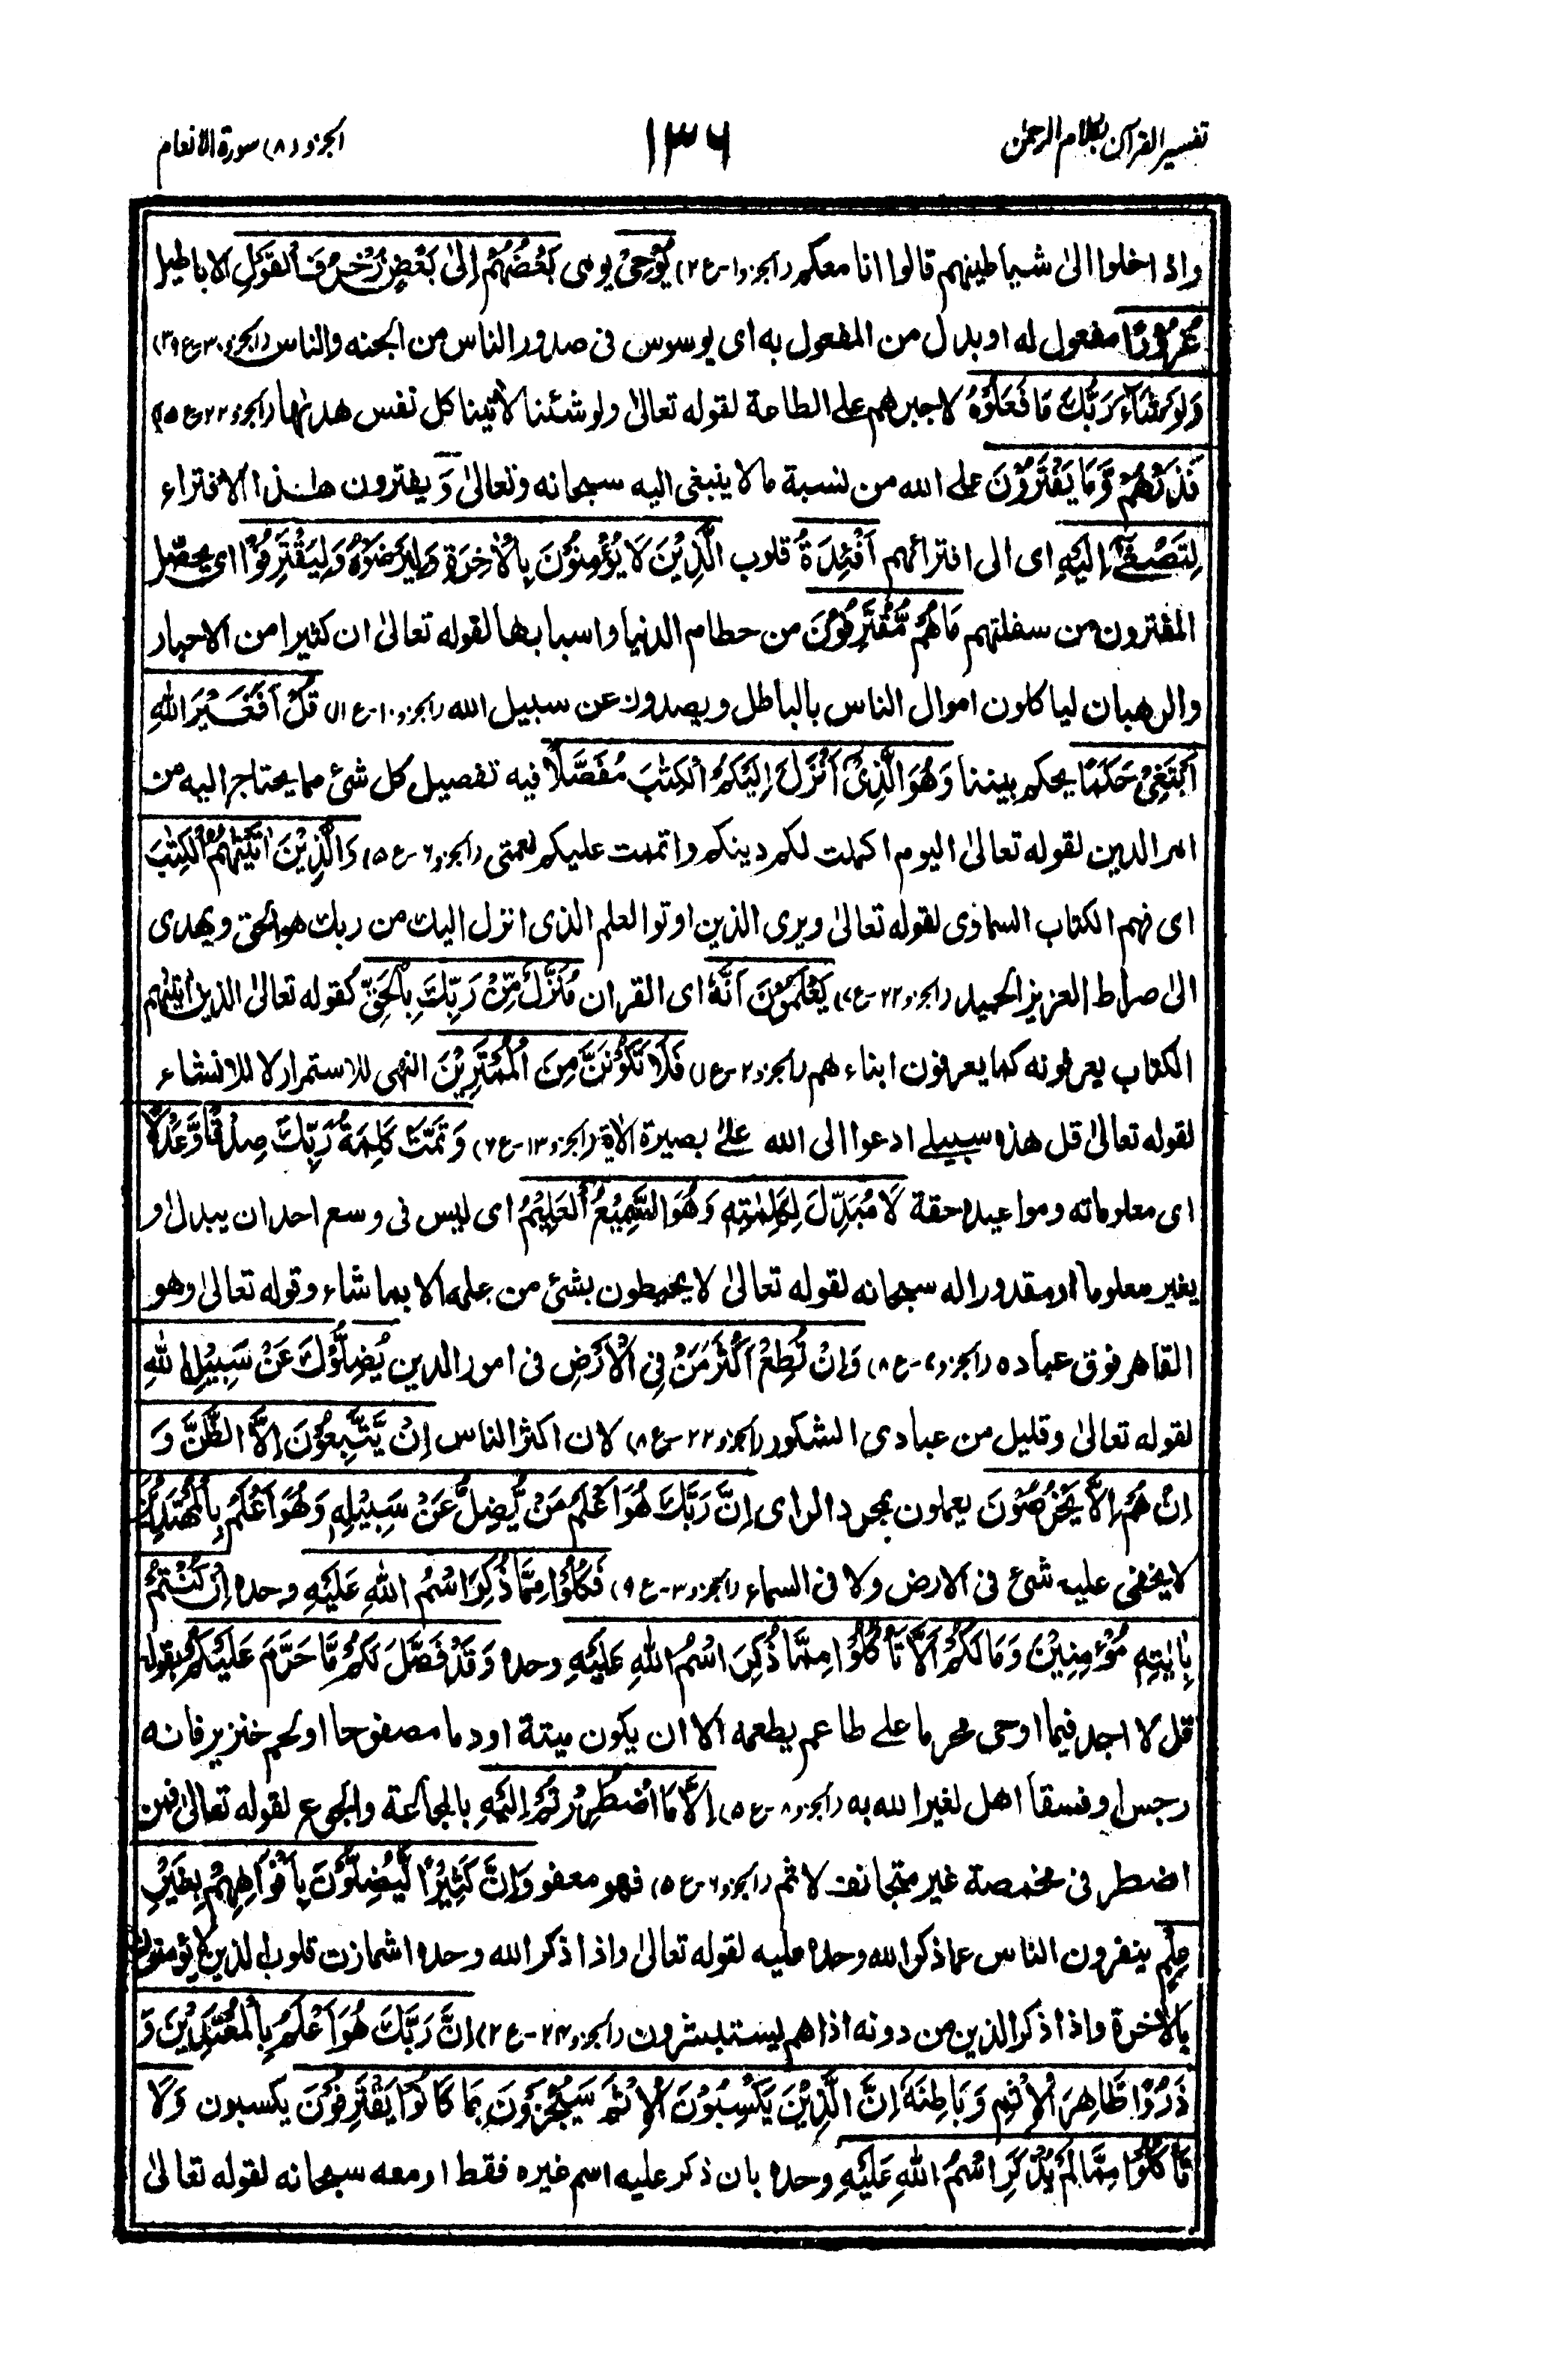 تفسير القرآن بكلام الرحمٰن
١٣٦
الجزو (٨) سورة الانعام
واذا خلوا الىٰ شياطينهم قالوا انا معكم (الجزو ١-ع ٢) يُوْحِىْ يوسى بَعْضُهُمْ اِلىٰ بَعْضٍ زُخْرُفَ الْقَوْلِ الاباطيل
غُرُوْرًا مفعول له او بدل من المفعول به اى يوسوس فى صدور الناس من الجنه والناس (الجزو ٣٠-ع ٣٩)
وَلَوْ شَآءَ رَبُّكَ مَا فَعَلُوْهُ لاجبرهم على الطاعة لقوله تعالىٰ ولو شئنا لأتينا كل نفس هدٰىها (الجزو ٢٢-ع ١٥)
فَذَرْهُمْ وَمَا يَفْتَرُوْنَ على الله من نسبة ما لا ينبغى اليه سبحانه وتعالىٰ وَ يفترون هٰذا الافتراء
لِتَصْغٰۤى اِلَيْهِ اى الى افترائهم اَفْئِدَةُ قلوب الَّذِيْنَ لَا يُؤْمِنُوْنَ بِالْاٰخِرَةِ وَلِيَرْضَوْهُ وَلِيَقْتَرِفُوْا اى يحصّل
المفترون من سفلتهم مَا هُمْ مُّقْتَرِفُوْنَ من حطام الدنيا واسبابها لقوله تعالىٰ ان كثيرا من الاحبار
والرهبان لياكلون اموال الناس بالباطل ويصدون عن سبيل الله (الجزو ١٠-ع ١١) قُلْ اَفَغَيْرَ اللهِ
اَبْتَغِىْ حَكَمًا يحكم بيننا وَهُوَ الَّذِىْٓ اَنْزَلَ اِلَيْكُمُ الْكِتٰبَ مُفَصَّلًا فيه تفصيل كل شئ مما يحتاج اليه من
امر الدين لقوله تعالىٰ اليوم اكملت لكم دينكم واتممت عليكم نعمتى (الجزو ٦-ع ٥) وَالَّذِيْنَ اٰتَيْنٰهُمُ الْكِتٰبَ
اى فهم الكتاب السماوى لقوله تعالىٰ ويرى الذين اوتوا العلم الذى انزل اليك من ربك هو الحق ويهدى
الىٰ صراط العزيز الحميد (الجزو ٢٢-ع ٧) يَعْلَمُوْنَ اَنَّهٗ اى القران مُنَزَّلٌ مِّنْ رَبِّكَ بِالْحَقِّ كقوله تعالىٰ الذين اٰتينٰهم
الكتاب يعرفونه كما يعرفون ابناءهم (الجزو ٢-ع ١) فَلَا تَكُوْنَنَّ مِنَ الْمُمْتَرِيْنَ النهى للاستمرار لا للانشاء
لقوله تعالىٰ قل هذه سبيلى ادعوا الى الله علىٰ بصيرة الاٰية (الجزو ١٣-ع ٦) وَتَمَّتْ كَلِمَةُ رَبِّكَ صِدْقًا وَّعَدْلًا
اى معلوماته ومواعيده حقة لَا مُبَدِّلَ لِكَلِمٰتِهٖ وَهُوَ السَّمِيْعُ الْعَلِيْمُ اى ليس فى وسع احد ان يبدل او
يغير معلوما او مقدورا له سبحانه لقوله تعالىٰ لا يحيطون بشئ من علمه الا بما شاء وقوله تعالىٰ وهو
القاهر فوق عباده (الجزو ٧-ع ٨) وَاِنْ تُطِعْ اَكْثَرَ مَنْ فِى الْاَرْضِ فى امور الدين يُضِلُّوْكَ عَنْ سَبِيْلِ اللهِ
لقوله تعالىٰ وقليل من عبادى الشكور (الجزو ٢٢-ع ٨) لان اكثر الناس اِنْ يَّتَّبِعُوْنَ اِلَّا الظَّنَّ وَ
اِنْ هُمْ اِلَّا يَخْرُصُوْنَ يعملون بمجرد الراى اِنَّ رَبَّكَ هُوَ اَعْلَمُ مَنْ يَّضِلُّ عَنْ سَبِيْلِهٖ وَهُوَ اَعْلَمُ بِالْمُهْتَدِيْنَ
لا يخفى عليه شئ فى الارض ولا فى السماء (الجزو ٣-ع ٩) فَكُلُوْا مِمَّا ذُكِرَ اسْمُ اللهِ عَلَيْهِ وحده اِنْ كُنْتُمْ
بِاٰيٰتِهٖ مُؤْمِنِيْنَ وَمَا لَكُمْ اَلَّا تَاْكُلُوْا مِمَّا ذُكِرَ اسْمُ اللهِ عَلَيْهِ وحده وَقَدْ فَصَّلَ لَكُمْ مَّا حَرَّمَ عَلَيْكُمْ بقوله
قل لا اجد فيما اوحى محرما على طاعم يطعمه الا ان يكون ميتة او دما مصفوحا او لحم خنزير فانه
رجس او فسقا اهل لغير الله به (الجزو ٨-ع ٥) اِلَّا مَا اضْطُرِرْتُمْ اِلَيْهِ بالمجاعة والجوع لقوله تعالىٰ فمن
اضطر فى مخمصة غير متجانف لاثم (الجزو ٦-ع ٥) فهو معفو وَاِنَّ كَثِيْرًا لَّيُضِلُّوْنَ بِاَفْوَاهِهِمْ بِغَيْرِ
عِلْمٍ ينفرون الناس عما ذكروا الله وحده عليه لقوله تعالىٰ واذا ذكر الله وحده اشمازت قلوب الذين لا يؤمنون
بالاٰخرة واذا ذكر الذين من دونه اذا هم يستبشرون (الجزو ٢٤-ع ٢) اِنَّ رَبَّكَ هُوَ اَعْلَمُ بِالْمُعْتَدِيْنَ وَ
ذَرُوْا ظَاهِرَ الْاِثْمِ وَبَاطِنَهٗ اِنَّ الَّذِيْنَ يَكْسِبُوْنَ الْاِثْمَ سَيُجْزَوْنَ بِمَا كَانُوْا يَقْتَرِفُوْنَ يكسبون وَلَا
تَاْكُلُوْا مِمَّا لَمْ يُذْكَرِ اسْمُ اللهِ عَلَيْهِ وحده بان ذكر عليه اسم غيره فقط او معه سبحانه لقوله تعالىٰ